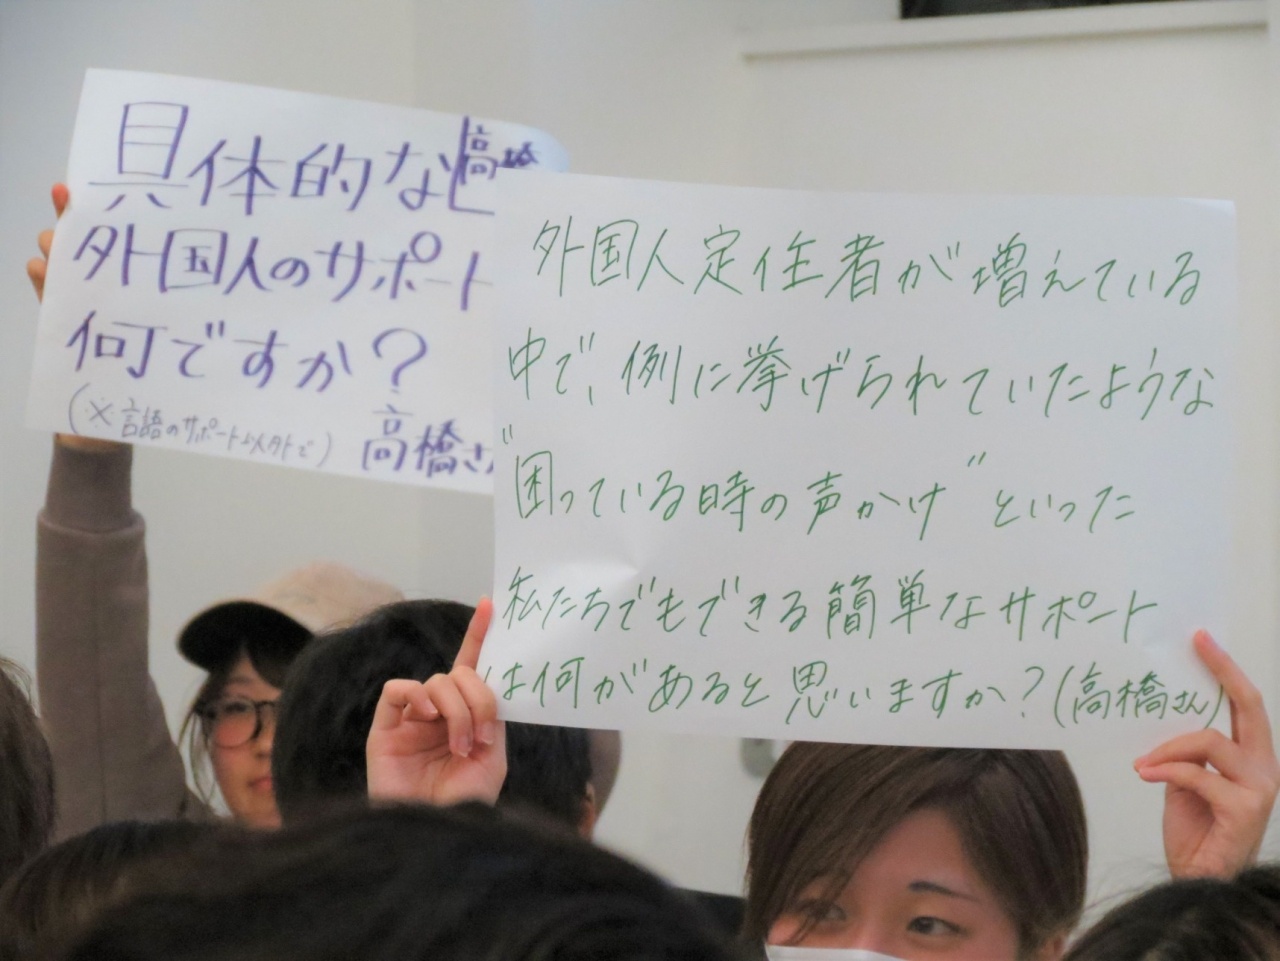 具体的な
高橋
外国人のサポート
何ですか？
(※言語のサポート以外で)
高橋さん
外国人定住者が増えている
中で、例に挙げられていたような
"困っている時の声かけ"といった
私たちでもできる簡単なサポート
は何があると思いますか？(高橋さん)